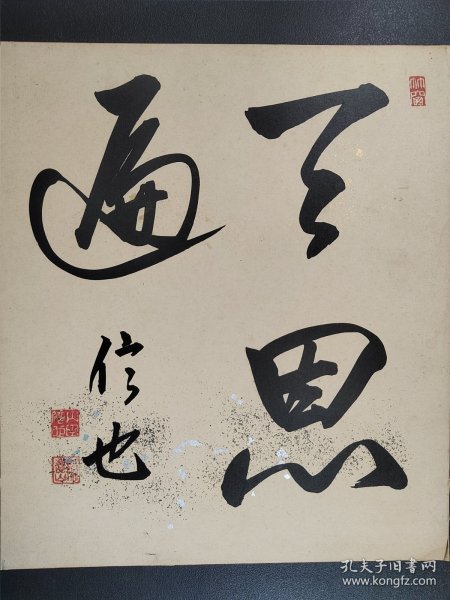 天恩
遍
信也
孔夫子旧书网
www.kongfz.com